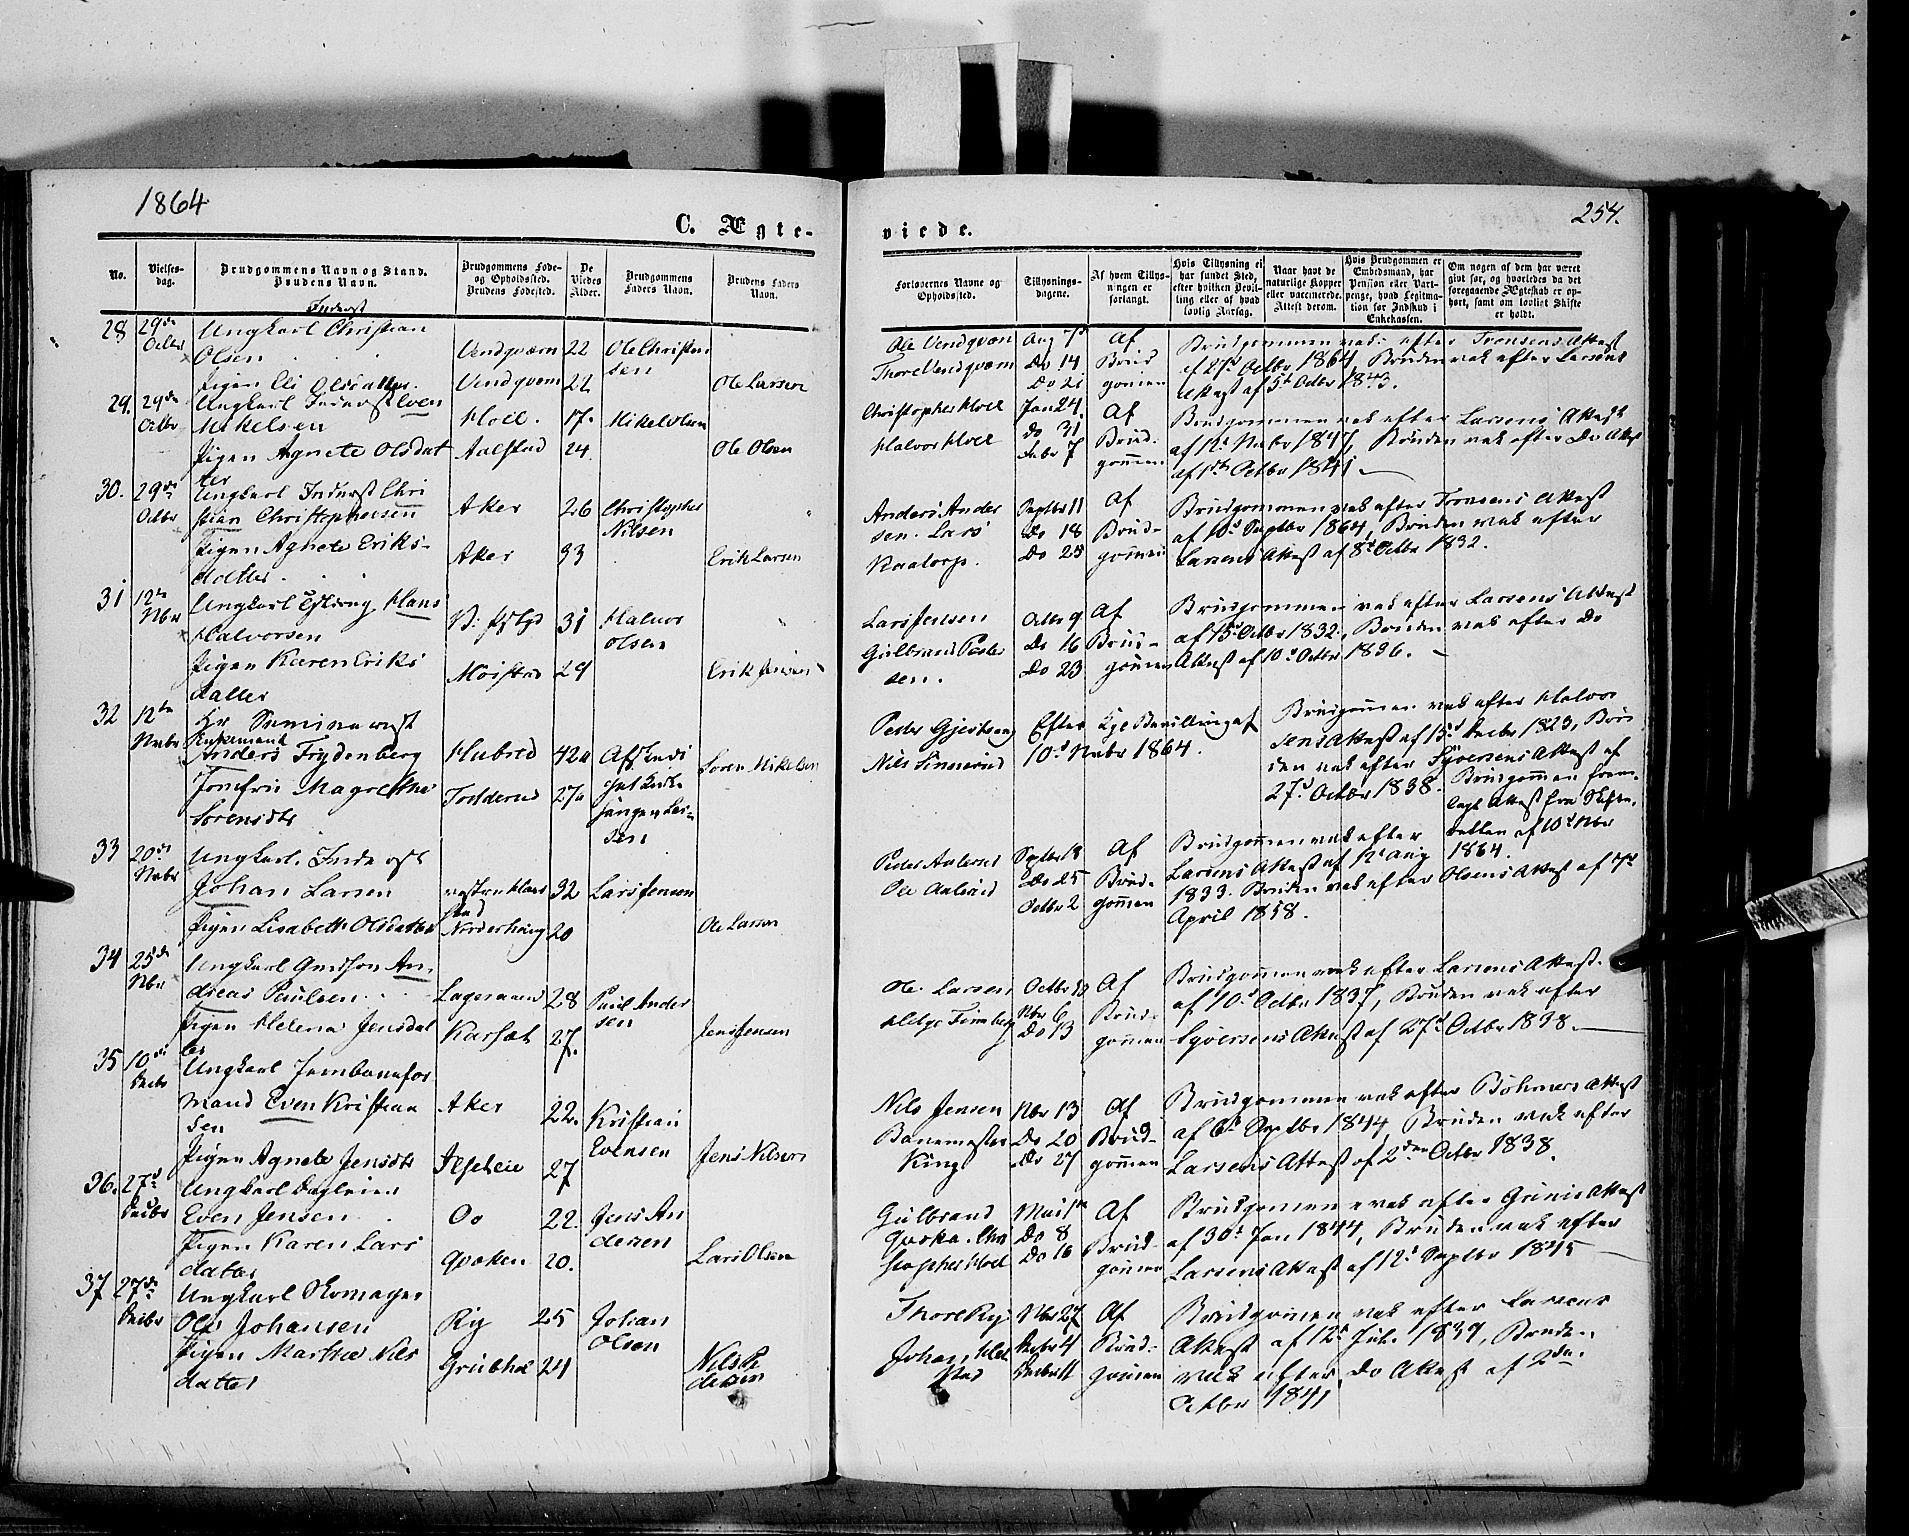 1864
C. Ægte-
No.
Vielses-
dag.
Brudgommens Navn og Stand.
Brudens Navn.
Brudgommens Føde-
og Opholdssted.
Brudens Fødested.
De
Viedes
Alder.
Brudgommens
Faders Navn.
Brudens Faders
Navn.
28
29de
Octbr
Inderst
Ungkarl Christian
Olsen
Vendqværn
22
Ole Christen
sen
Pigen Eli Olsdatter
Vendqværn
22
Ole Larsen
29.
29de
Octbr
Ungkarl Inderst Even
Mikelsen
Hoel.
17.
Mikel Olsen
Pigen Agnete Olsdat
ter
Aalstad
24.
Ole Olsen
30.
29de
Octbr
Ungkarl Inderst Chri
stian Christophersen
Aker
26
Christopher
Nilsen
Pigen Agnete Eriks-
datter
Aker
33
Erik Larsen
31
12te
Nbr
Ungkarl Hans
Halvorsen
31
Halvor
Olsen
Pigen Karen Eriks
datter
Moistad
29
Erik Jensen
32
12te
Nvbr
Hr Seminarist
Anders Frydenberg
Hubred
42
Jomfru Magrethe
Sorensdtr
27
Soren Mikelsen
33
20de
Nvbr
Ungkarl Inderst
Johan Larsen
32
Lars Jensen
Pigen Lisabeth Olsdatter
Norderhaug
20
Ole Larsen
34
25de
Nbr
Ungkarl An
dreas Paulsen
28
Paul Ander
sen
Pigen Helena Jensdat
ter
Karset
27.
Jens Jensen
35
10de
Decbr
Ungkarl Jernbanefor
mand Even Kristian
sen
Aker
22.
Kristian
Evensen
Pigen Agnete Jensdtr
27
Jens Nilsen
36.
27de
Decbr
Ungkarl
Even Jensen
Oo
22.
Jens An
dersen
Pigen Karen Lars
datter
Qvoken
20.
Lars Olsen
37
27de
Decbr
Ungkarl Skomager
Ole Johansen
Ry
25
Johan
Olsen
Pigen Marthe Nils
datter
Grübhol
24
Nils Pe
dersen
254.
viede.
Forlovernes Navne og
Opholdssted.
Tillysnings-
dagene.
Af hvem Tillys-
ningen er
forlangt.
Hvis Tillysning ei
har fundet Sted,
efter hvilken Bevil-
ling eller af hvad
lovlig Aarsag.
Naar havt de
naturlige Kopper
eller vaccinerede.
Attest derom.
Hvis Brudgommen er
Embedsmand, har
Pension eller Vart-
penge, hvad Legitima-
tion for Indskud i
Enkekassen.
Om nogen af dem har været
gift før, og hvorledes da det
foregaaende Ægteskab er op-
hørt, samt om lovligt Skifte
er holdt.
Ole Vendqværn
Thore Vendqværn
Aug 7de
Do 14
Do 21
Af
Brud
gommen
Brudgommen vak: efter Fronsens Attest
af 21de Octbr 1864, Bruden vak efter Larsens
Attest af 5t Octbr 1843.
Christopher Hoel
Halvor Hoel
Jan 24.
do 31
Febr 7
Af
Brud-
gommen
Brudgommen vak efter Larsens Attest
af 12te Nvbr 1847, Bruden vak efter Do Attest
af 1ste Octbr 1841.
Anders Ander
sen. Lars
Septbr 11
Do 18
Do 25
Af
Brud-
gommen
Brudgommen vak efter Fronsens Attest
af 10de Septbr 1864, Bruden vak efter
Larsens Attest af 8de Octbr 1832.
Lars Jensen
Gulbrand Peder
sen.
Octbr 9
Do 16
Do 23
Af
Brud-
gommen
Brudgommen vak efter Larsens Attest
af 15de Octbr 1832, Bruden vak efter Do
Attest af 10de Octbr 1836.
Peder
Nils
Efter Kgl Bevilling af
10de Nvbr 1864.
Brudgommen vak efter Halvor
sens Attest af 15de Decbr 1823, Bru
den vak efter Syversens Attest af
27de Octbr 1838.
Brudgommen frem-
lagt Attest fra Skifte-
retten af 10de Nbr
1864.
Septbr 18
Do 25
Octbr 2
Af
Brud-
gommen
Brudgommen vak efter
Larsens Attest af 12te Aug
1833. Bruden vak efter Olsens Attest af 7de
April 1858.
Ole Larsen
Nbr 6
Do 13
Af
Brud-
gommen
Brudgommen vak efter Larsens Attest
af 10de Octbr 1837, Bruden vak efter
Syversens Attest af 27de Octbr 1838.
Nils Jensen
Banemester
King
Nbr 13
Do 20
Do 27
Af
Brud-
gommen
Brudgommen vak efter Böhmers Attest
af 6te Septbr 1844, Bruden vak efter
Larsens Attest af 2den Octbr 1838.
Gulbrand
Qvoken. Chri
stopher Hoel
Mai 1ste
Do 8
Do 16
Af
Brud-
gommen
Brudgommen vak efter Attest
af 30te Jan 1844, Bruden vak efter
Larsens Attest af 12te Septbr 1845
Thore Ry
Johan
Nbr 27
Decbr 4
Decbr 11
Af
Brud-
gommen
Brudgommen vak efter Larsens
Attest af 12te Juli 1839, Bruden
vak efter Do Attest af 2den
Octbr 1841